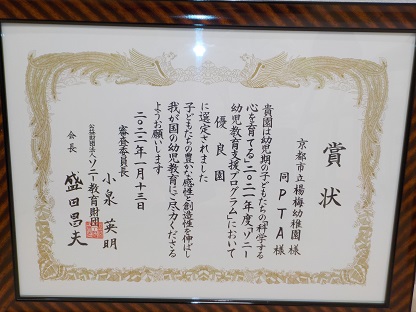 賞状
京都市立楊梅幼稚園様
同PTA様
貴園は幼児期の子どもたちの「科学する
心を育てる」二〇二一年度「ソニー
幼児教育支援プログラム」において
優良園
に選定されました
子どもたちの豊かな感性と創造性を伸ばし
我が国の幼児教育にご尽力くださる
ようお願いします
二〇二二年一月十三日
審査委員長
小泉英明
公益財団法人ソニー教育財団
会長 盛田昌夫